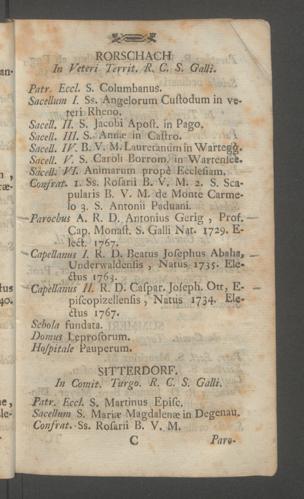 RORSCHACH
In Veteri Territ. R. C. S. Galli.
Patr. Eccl. S. Columbanus.
Sacellum I. Ss. Angelorum Custodum in ve-
teri Rheno.
Sacell. II. S. Jacobi Apost. in Pago.
Sacell. III. S. Annæ in Castro.
Sacell. IV. B. V. M. Lauretanum in Wartegg.
Sacell. V. S. Caroli Borrom. in Wartensee.
Sacell. VI. Animarum propè Ecclesiam.
Confrat. 1. Ss. Rosarii B. V. M. 2. S. Sca-
pularis B. V. M. de Monte Carme-
lo 3. S. Antonii Paduani.
Parochus A. R. D. Antonius Gerig, Prof.
Cap. Monast. S. Galli Nat. 1729. E-
lect. 1767.
Capellanus I. R. D. Beatus Josephus Abaha,
Underwaldensis, Natus 1735. Ele-
ctus 1763.
Capellanus II. R. D. Caspar. Joseph. Ott, E-
piscopizellensis, Natus 1734. Ele-
ctus 1767.
Schola fundata.
Domus Leprosorum.
Hospitale Pauperum.
SITTERDORF.
In Comit. Turgo. R. C. S. Galli.
Patr. Eccl. S. Martinus Episc.
Sacellum S. Mariæ Magdalenæ in Degenau.
Confrat. Ss. Rosarii B. V. M.
C Paro-